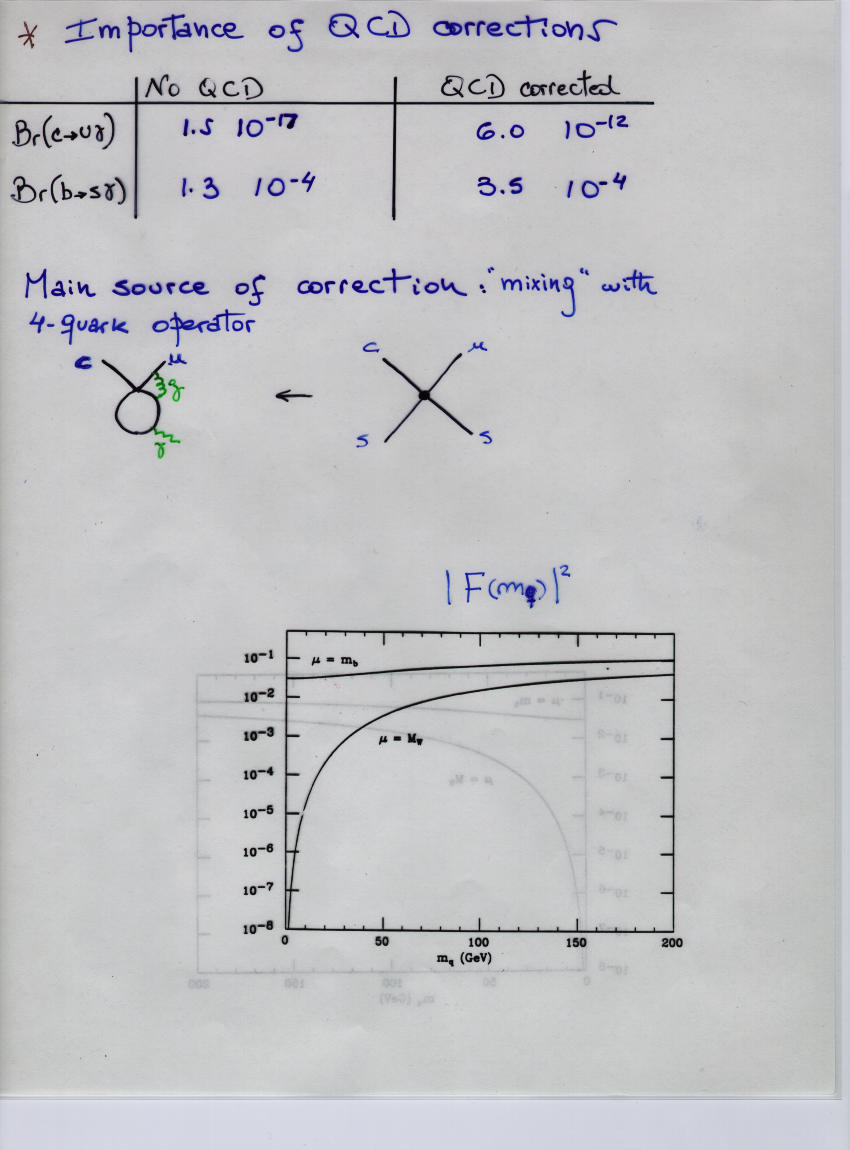 * Importance of QCD corrections
No QCD QCD corrected
Br(c→uγ) 1.5 10⁻¹⁷ 6.0 10⁻¹²
Br(b→sγ) 1.3 10⁻⁴ 3.5 10⁻⁴
Main source of correction : "mixing" with
4-quark operator
c u g γ ← c u s s
|F(m_q)|²
10⁻¹
μ = m_b
10⁻²
10⁻³
μ = M_W
10⁻⁴
10⁻⁵
10⁻⁶
10⁻⁷
10⁻⁸
0 50 100 150 200
m_q (GeV)